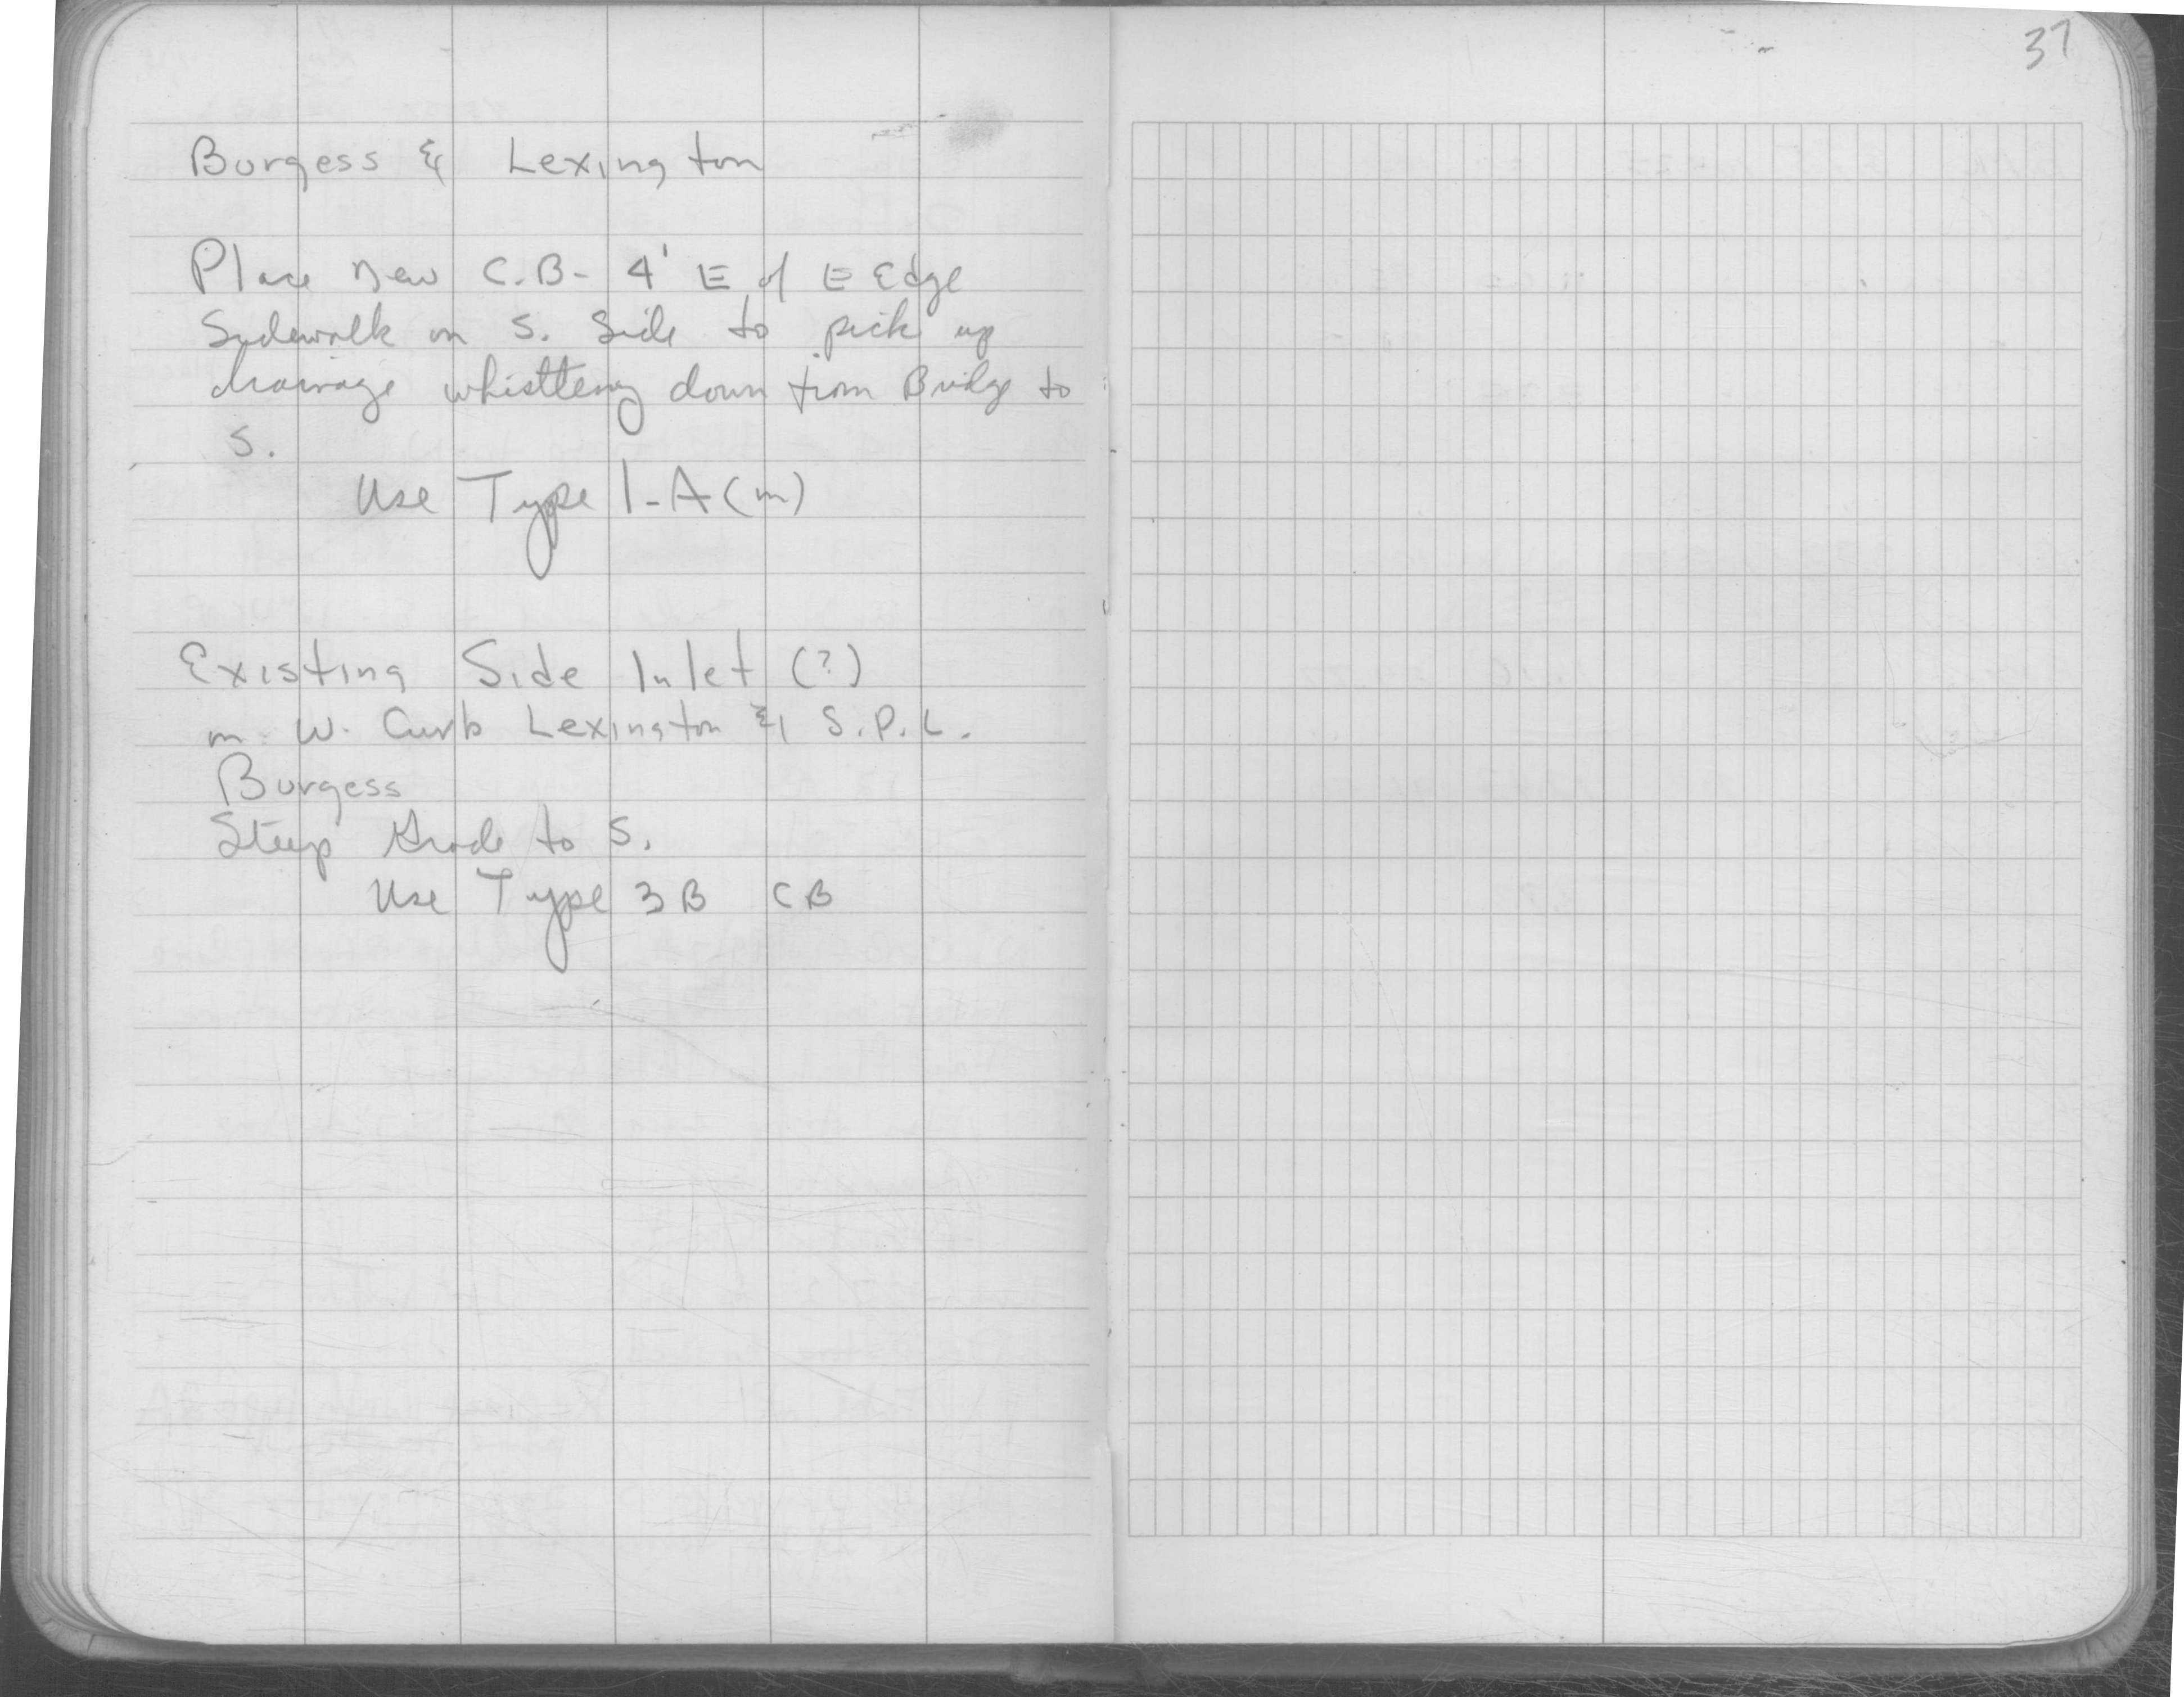 37
Burgess & Lexington
Place New C.B- 4' E of E Edge
Sidewalk on S. Side to pick up
drainage whistleing down from Bridge to
S.
Use Type 1-A(m)
Existing Side Inlet (?)
on W. Curb Lexington & S.P.L.
Burgess
Steep Grade to S.
Use Type 3B CB